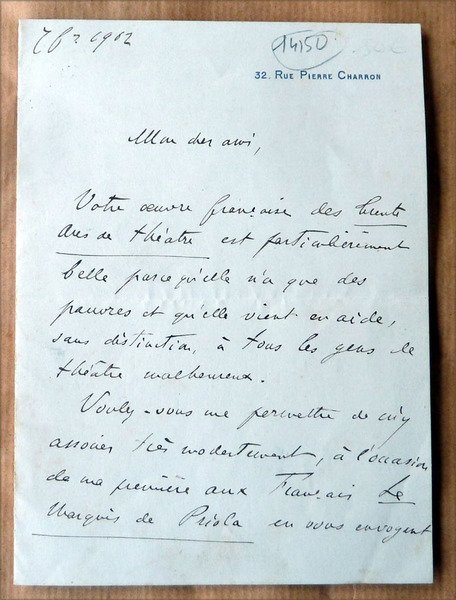 7 fr 1902
14150
32. RUE PIERRE CHARRON
Mon cher ami,
Votre œuvre française des trente
ans de théâtre est particulièrement
belle parce qu'elle n'a que des
pauvres et qu'elle vient en aide,
sans distinction, à tous les gens de
théâtre malheureux.
Voulez-vous me permettre de m'y
associer très modestement, à l'occasion
de ma première aux Français Le
Marquis de Priola en vous envoyant